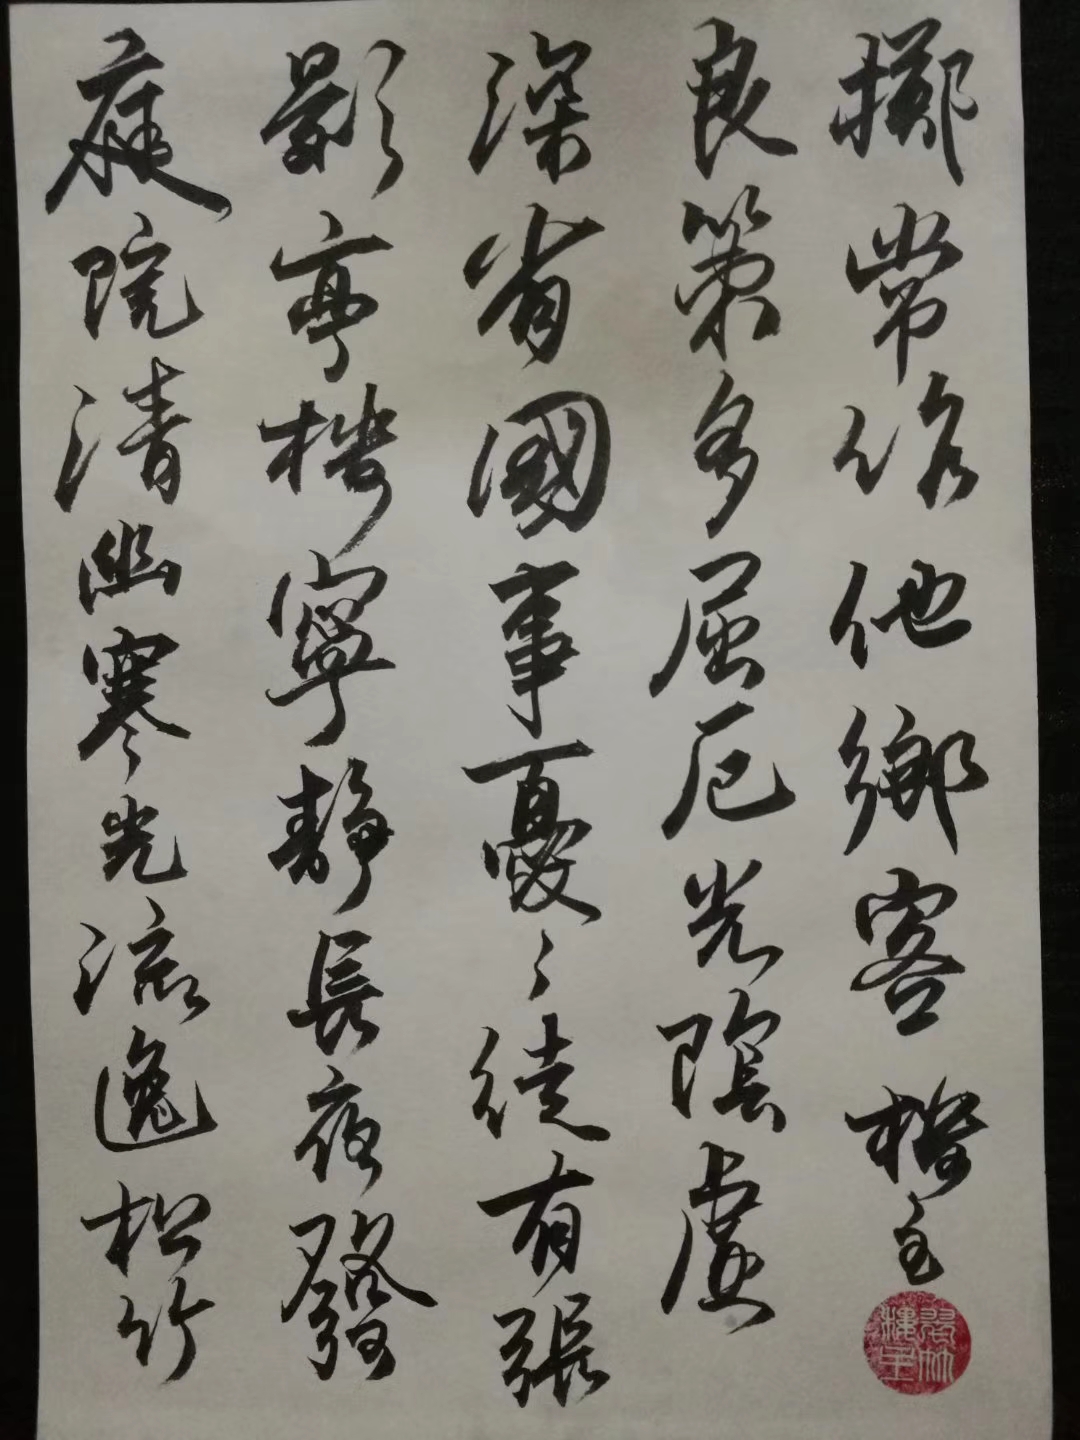 庭院清幽寒光流逸松竹
影亭樓寧靜長夜發
深省國事憂〻徒有張
良策多屈厄光陰虛
擲常作他鄉客 樓主